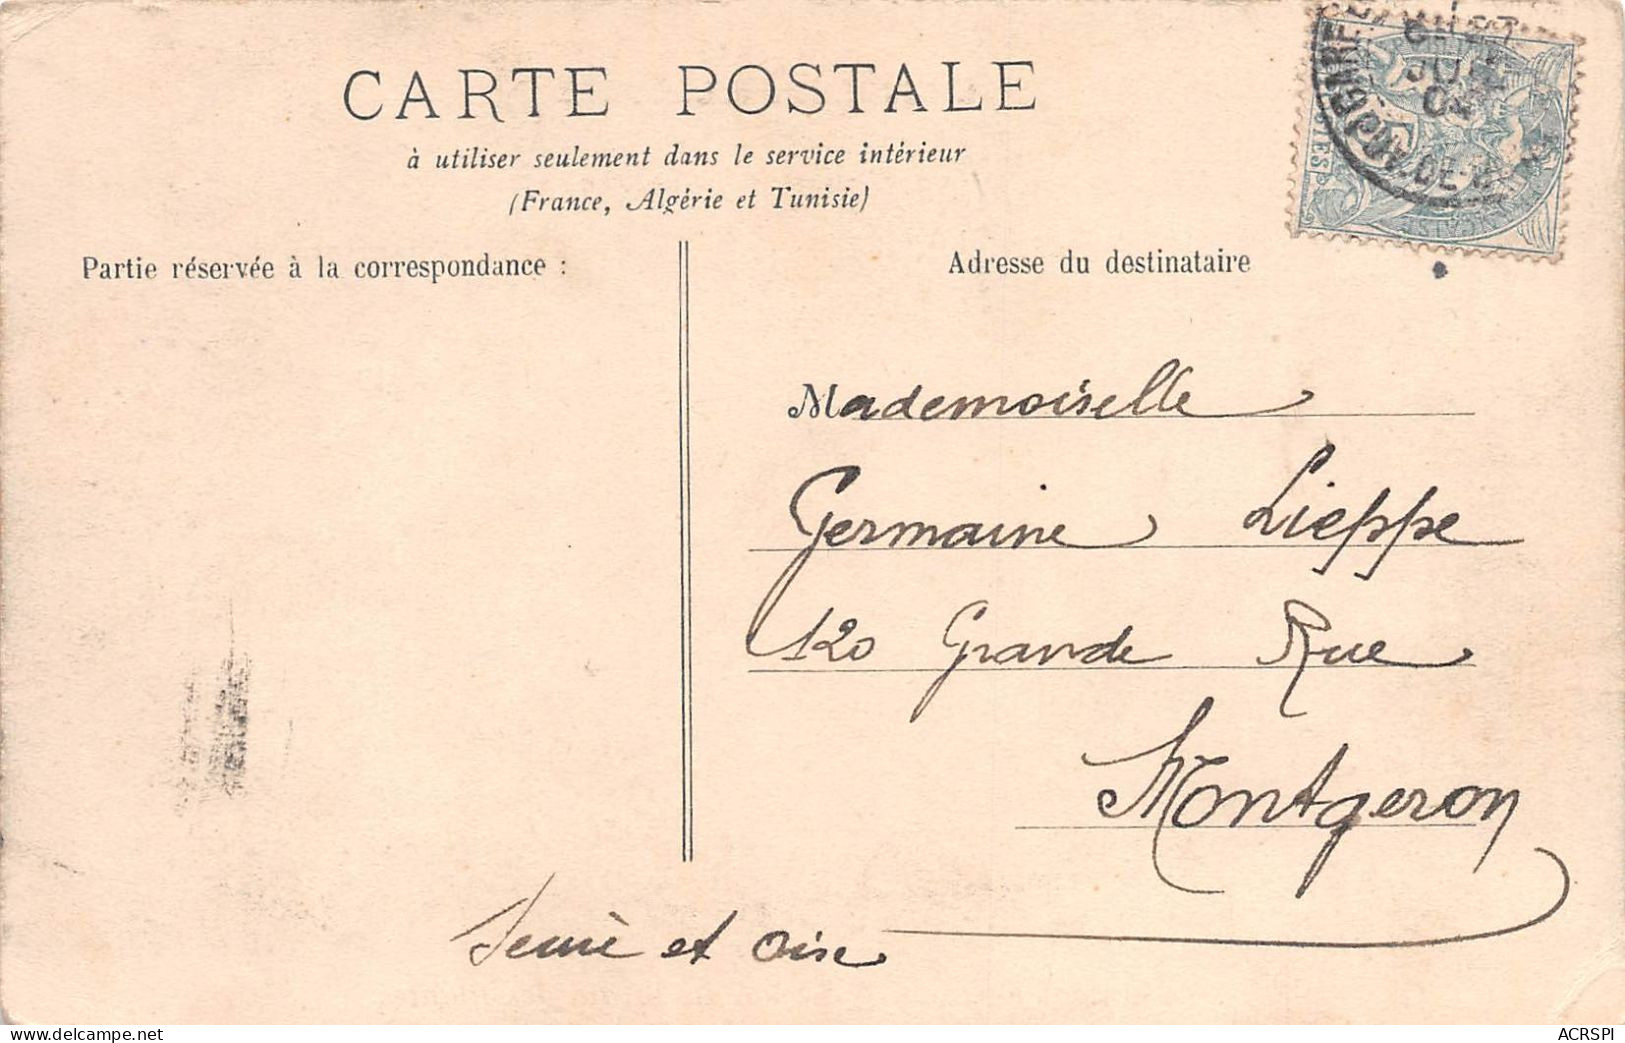 CARTE POSTALE
à utiliser seulement dans le service intérieur
(France, Algérie et Tunisie)
Partie réservée à la correspondance :
Adresse du destinataire
Mademoiselle
Germaine Lieppe
120 Grande Rue
Montgeron
Seine et Oise
delcampe.net
ACRSPI